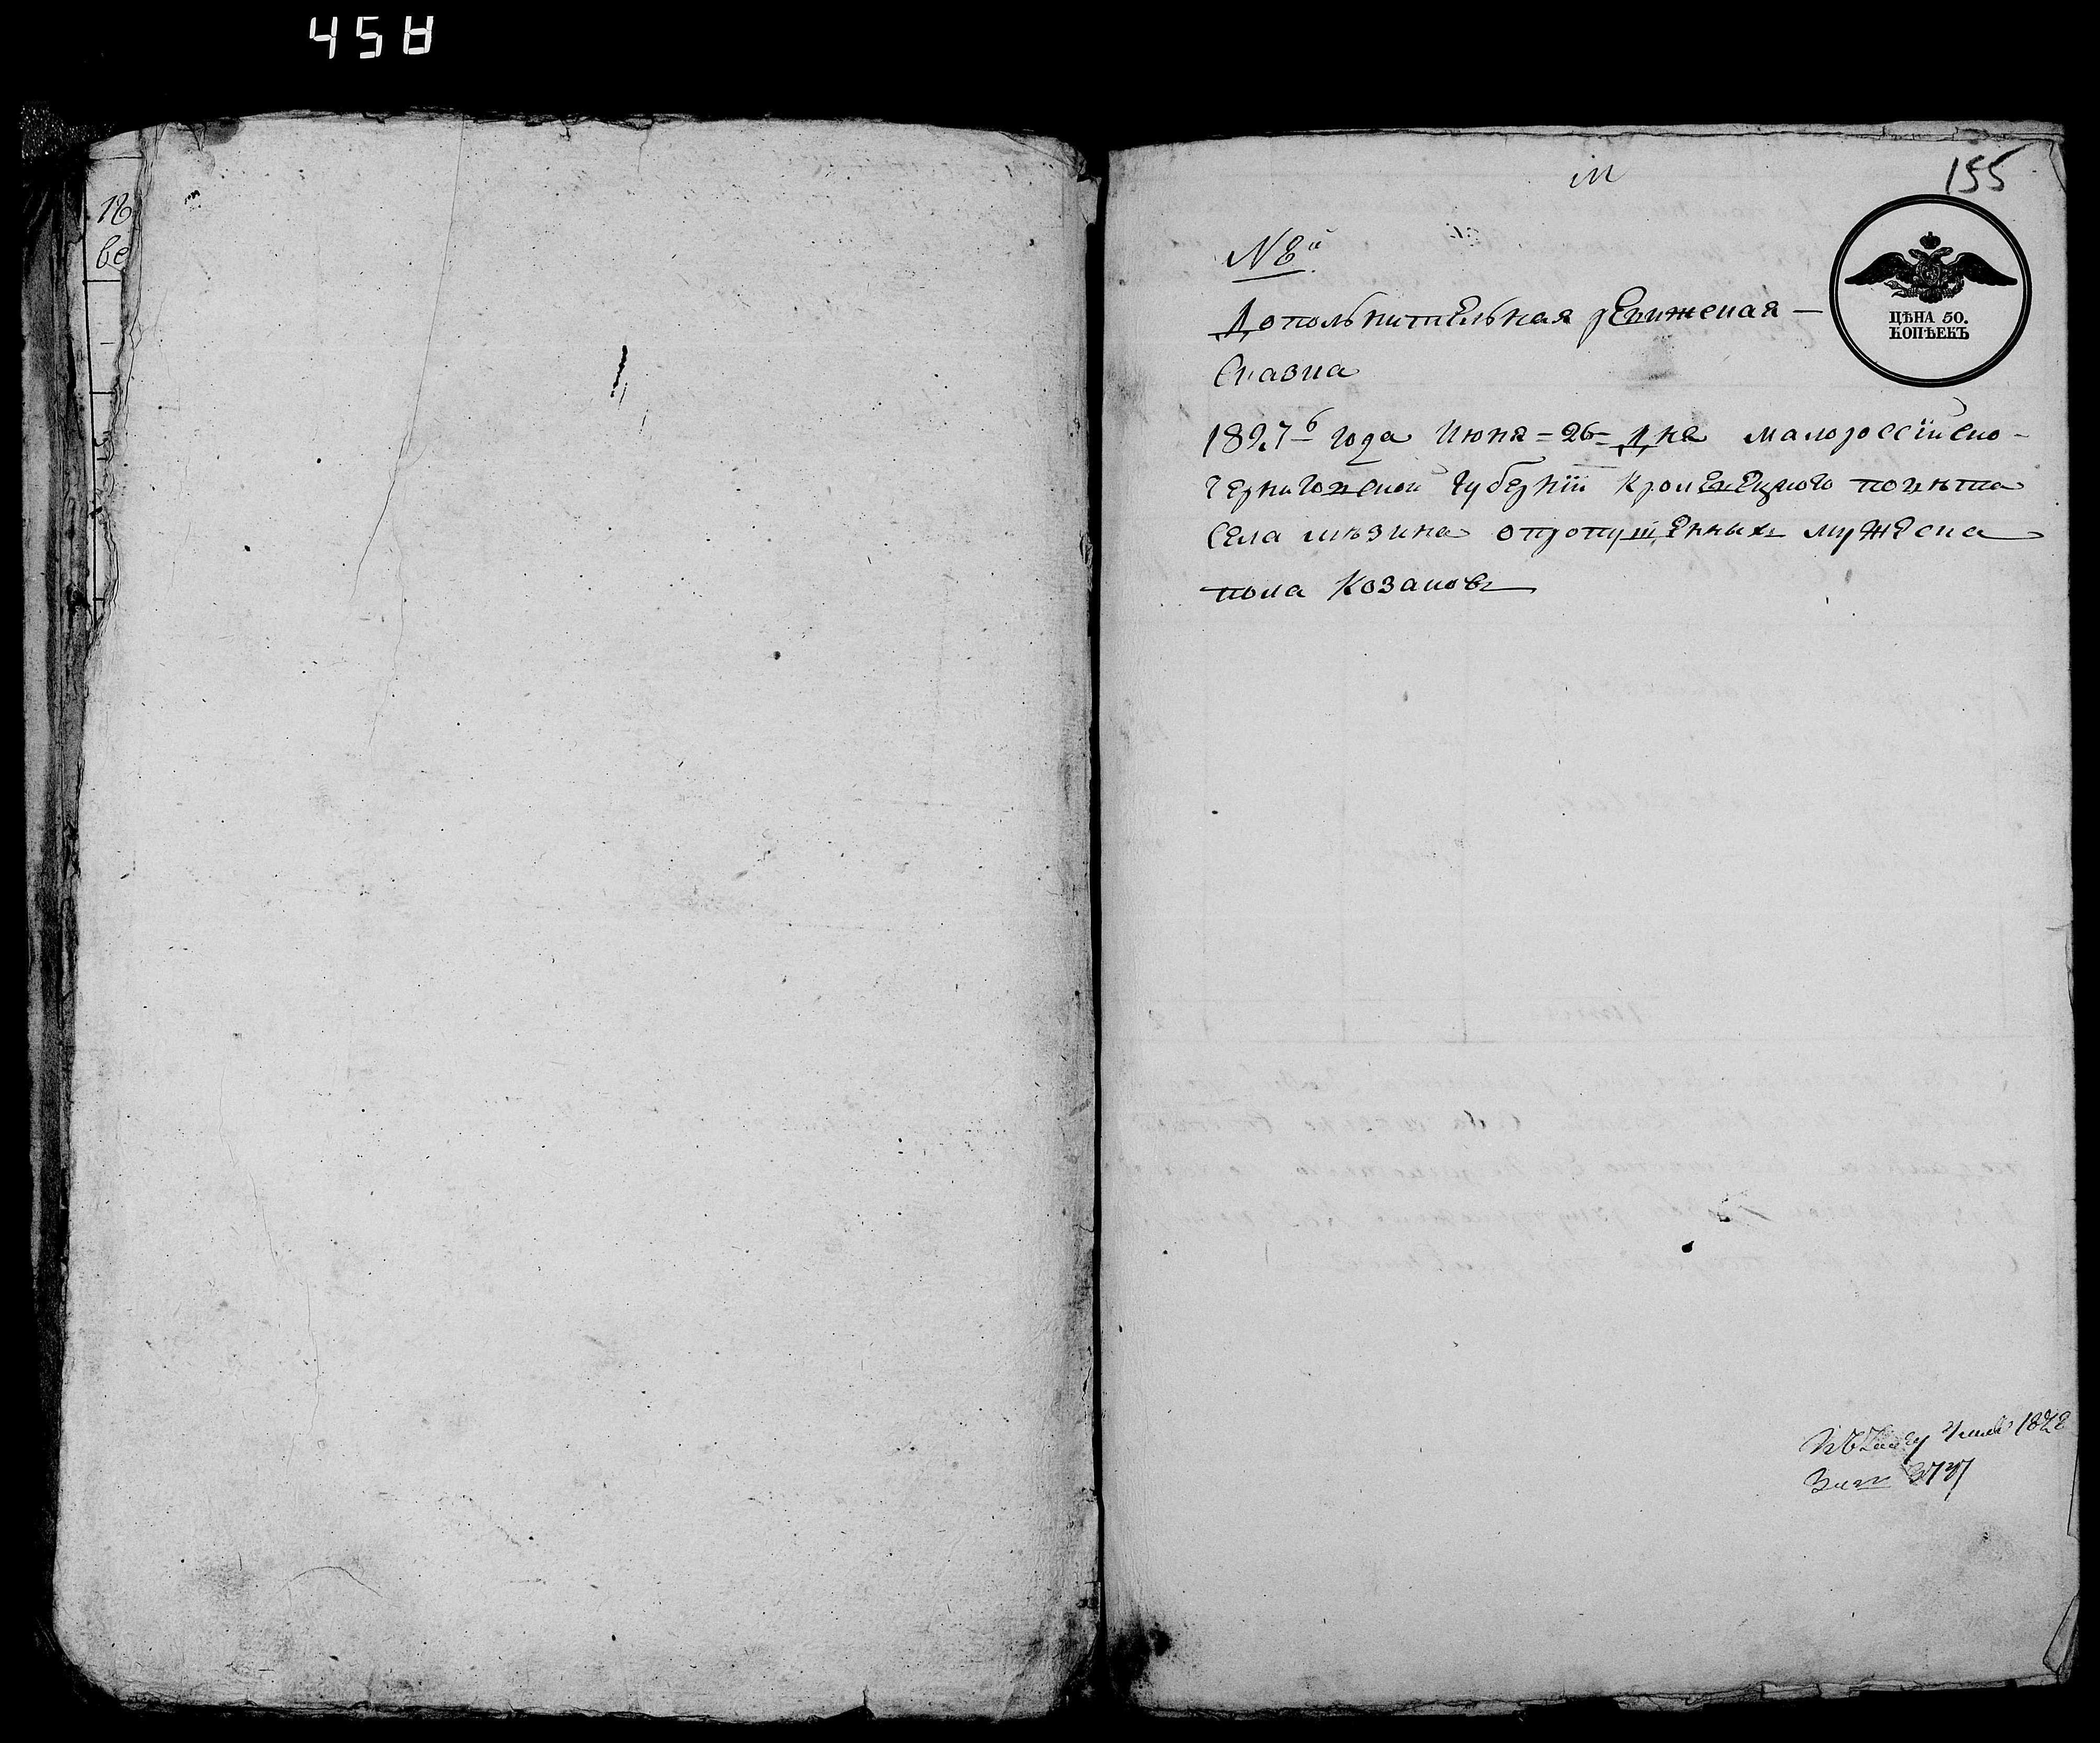 458
18
ве
155
М
№ 8й
ЦѢНА 50.
КОПѢЕКЪ
Допольнительная ревижская —
Сказка
1827го года Июня = 26 = дня Малороссійско-
Черниговской Губерніи Кролевецкого повѣта
Села мѣзина опропущенныхъ мужеска
пола Козаковъ
1828
3737